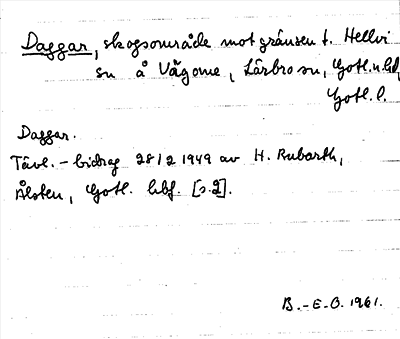 Daggar, skogsområde mot gränsen t. Hellvi
sn å Vägome, Lärbro sn, Gotl. n. hd,
Gotl. l.
Daggar.
Tävl. - bidrag 28/2 1949 av H. Rubarth,
Ålsten, Gotl. hbf. [s. 2].
B. - E. O. 1961.